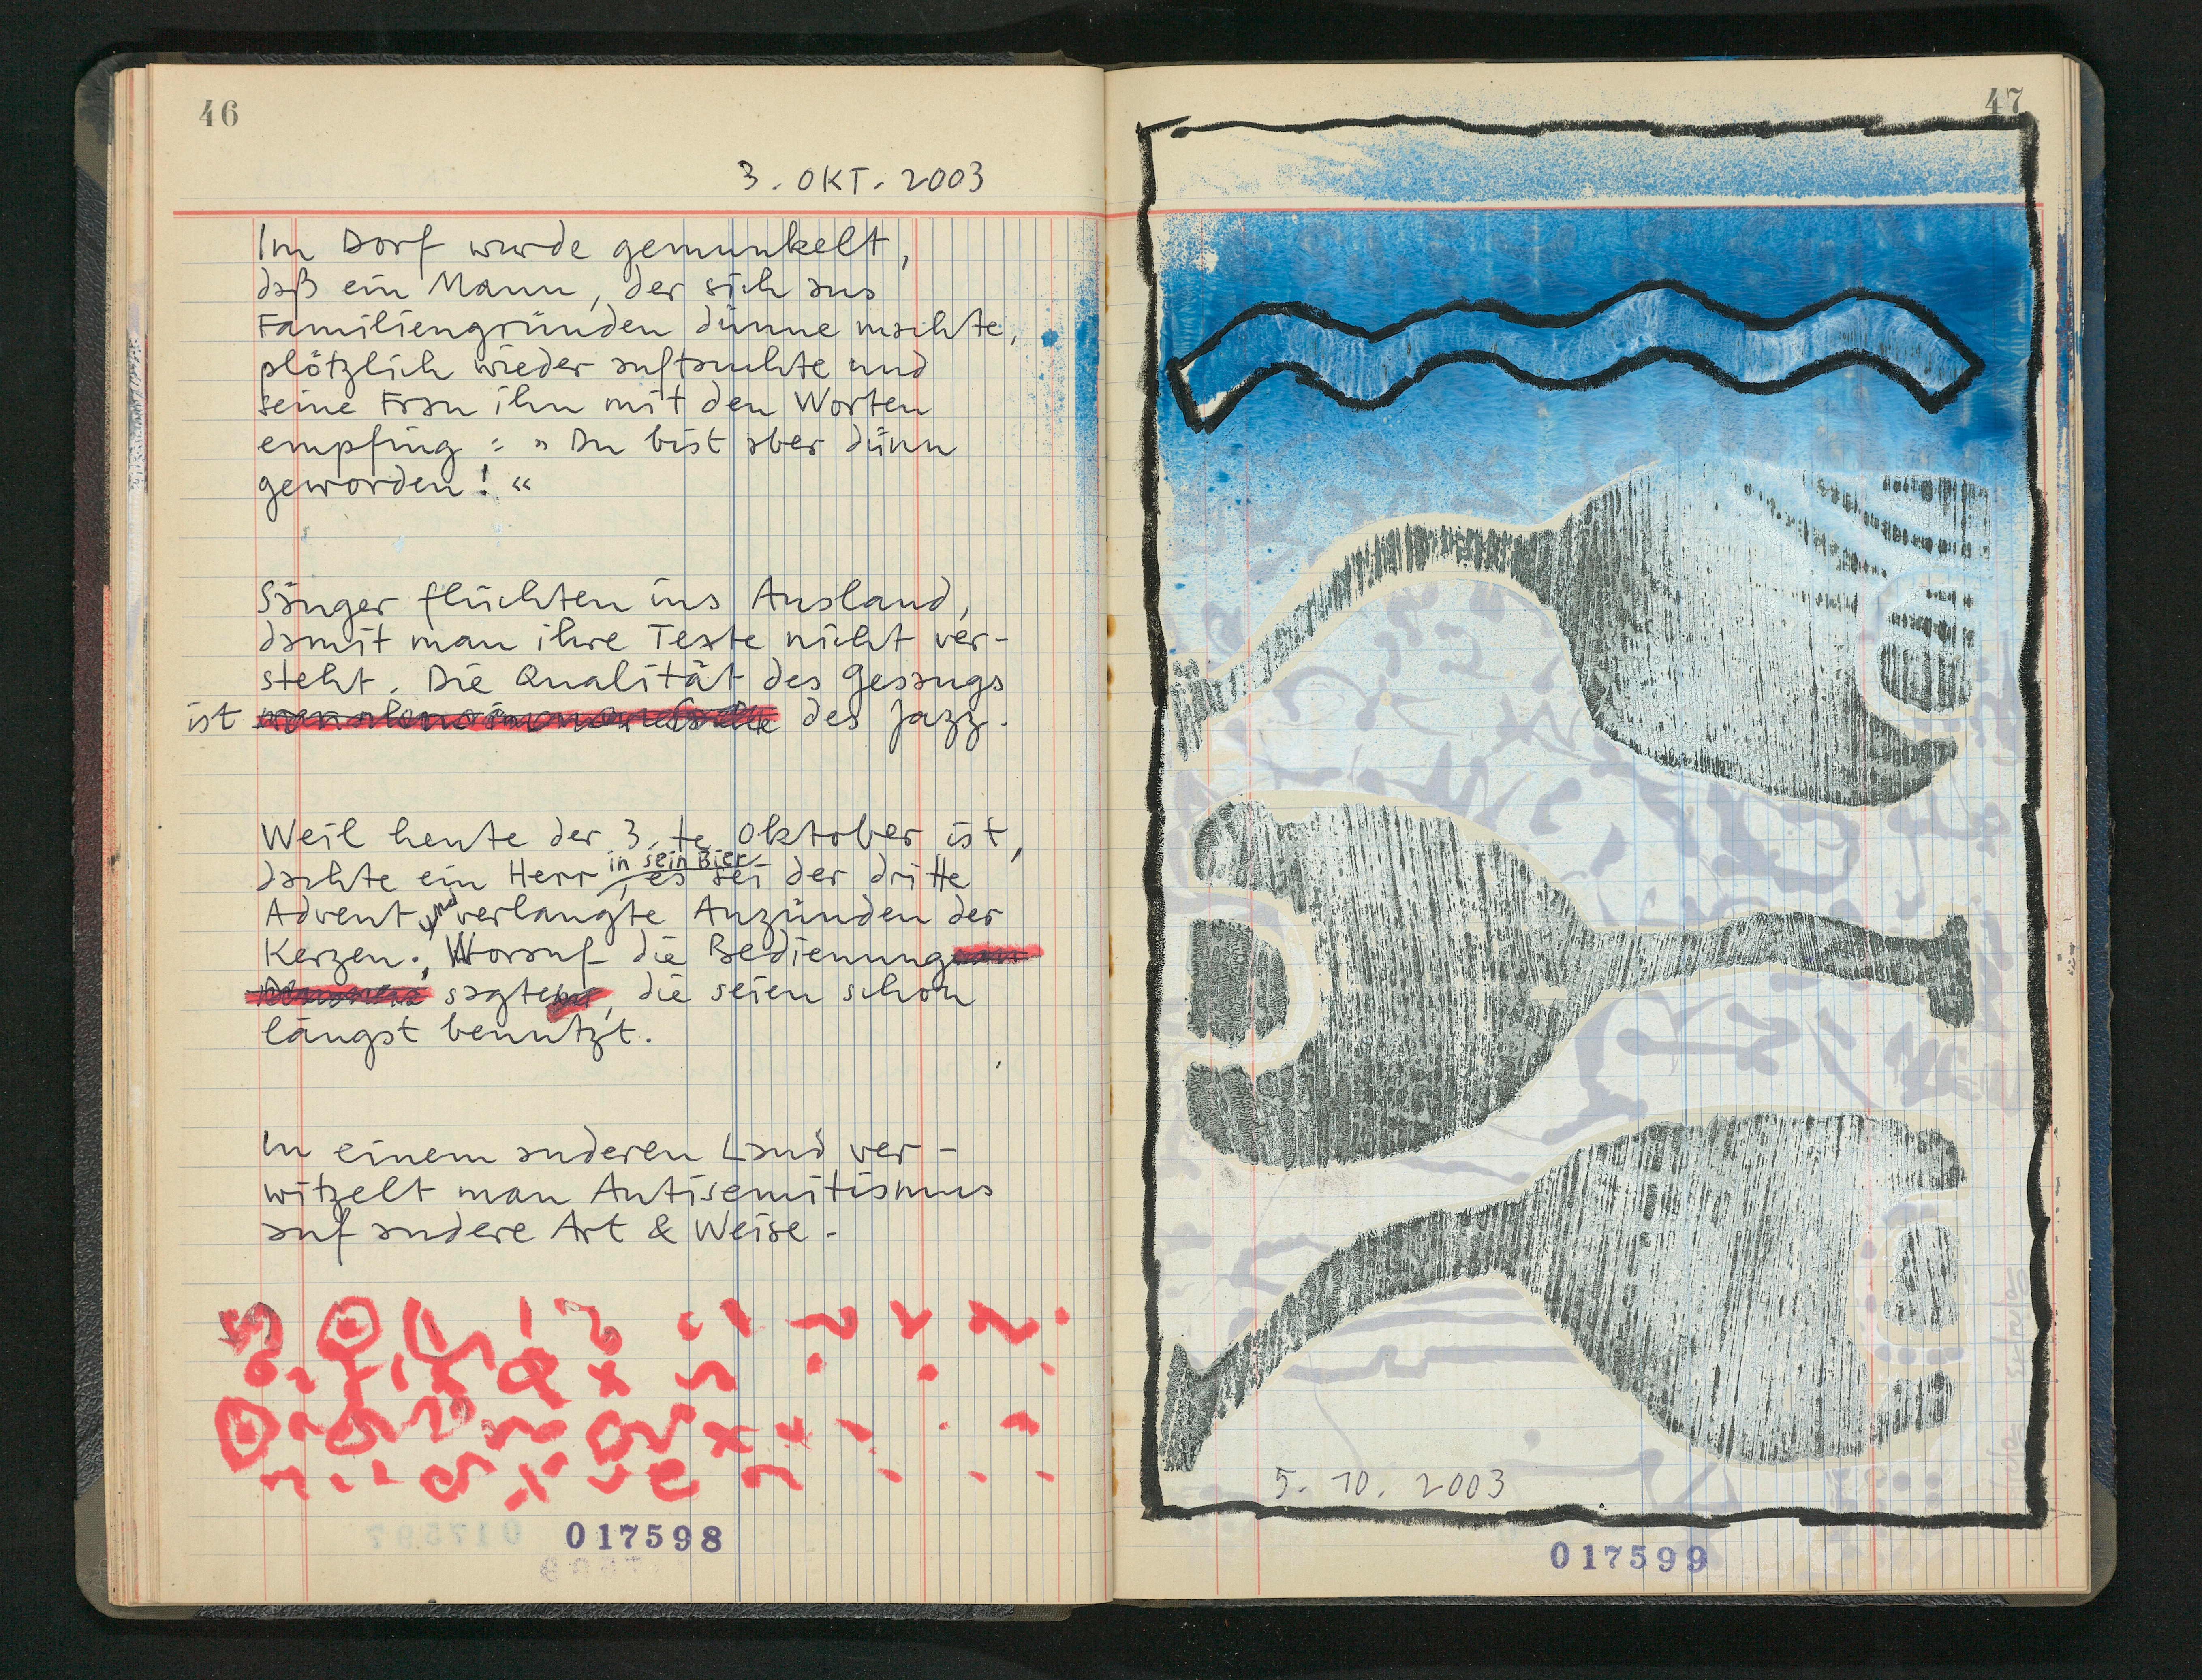 46
3. OKT. 2003
Im Dorf wurde gemunkelt,
daß ein Mann, der sich aus
Familiengründen dünne machte,
plötzlich wieder auftauchte und
seine Frau ihn mit den Worten
empfing : » Du bist aber dünn
geworden! «
Sänger flüchten ins Ausland,
damit man ihre Texte nicht ver-
steht. Die Qualität des Gesangs
ist des Jazz.
Weil heute der 3.te Oktober ist,
in sein Bier
dachte ein Herr, es sei der dritte
Advent und verlangte Anzünden der
Kerzen. Worauf die Bedienung
sagte, die seien schon
längst benutzt.
In einem anderen Land ver-
witzelt man Antisemitismus
auf andere Art & Weise.
017598
47
5. 10. 2003
017599